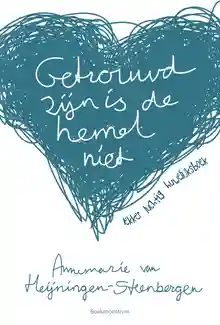 Getrouwd
zijn is de
hemel
niet
lekker nuchter huwelijksboek
Annemarie van
Heijningen-Steenbergen
Boekencentrum